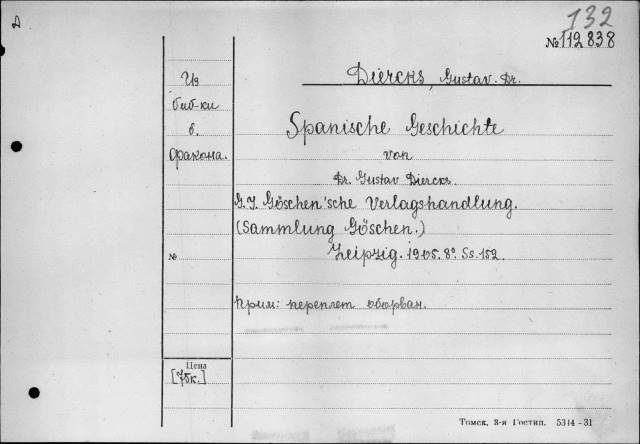 D
132
№ 112838
Из
биб-ки
б.
Фракона.
Diercks, Gustav. Dr.
Spanische Geschichte
von
Dr. Gustav Diercks.
G.J. Göschen'sche Verlagshandlung.
(Sammlung Göschen.)
№
Leipzig. 1905. 8º. Ss. 152.
Прим: переплет оборван.
Цена
[75к.]
Томск, 3-я Гостип. 5344-31